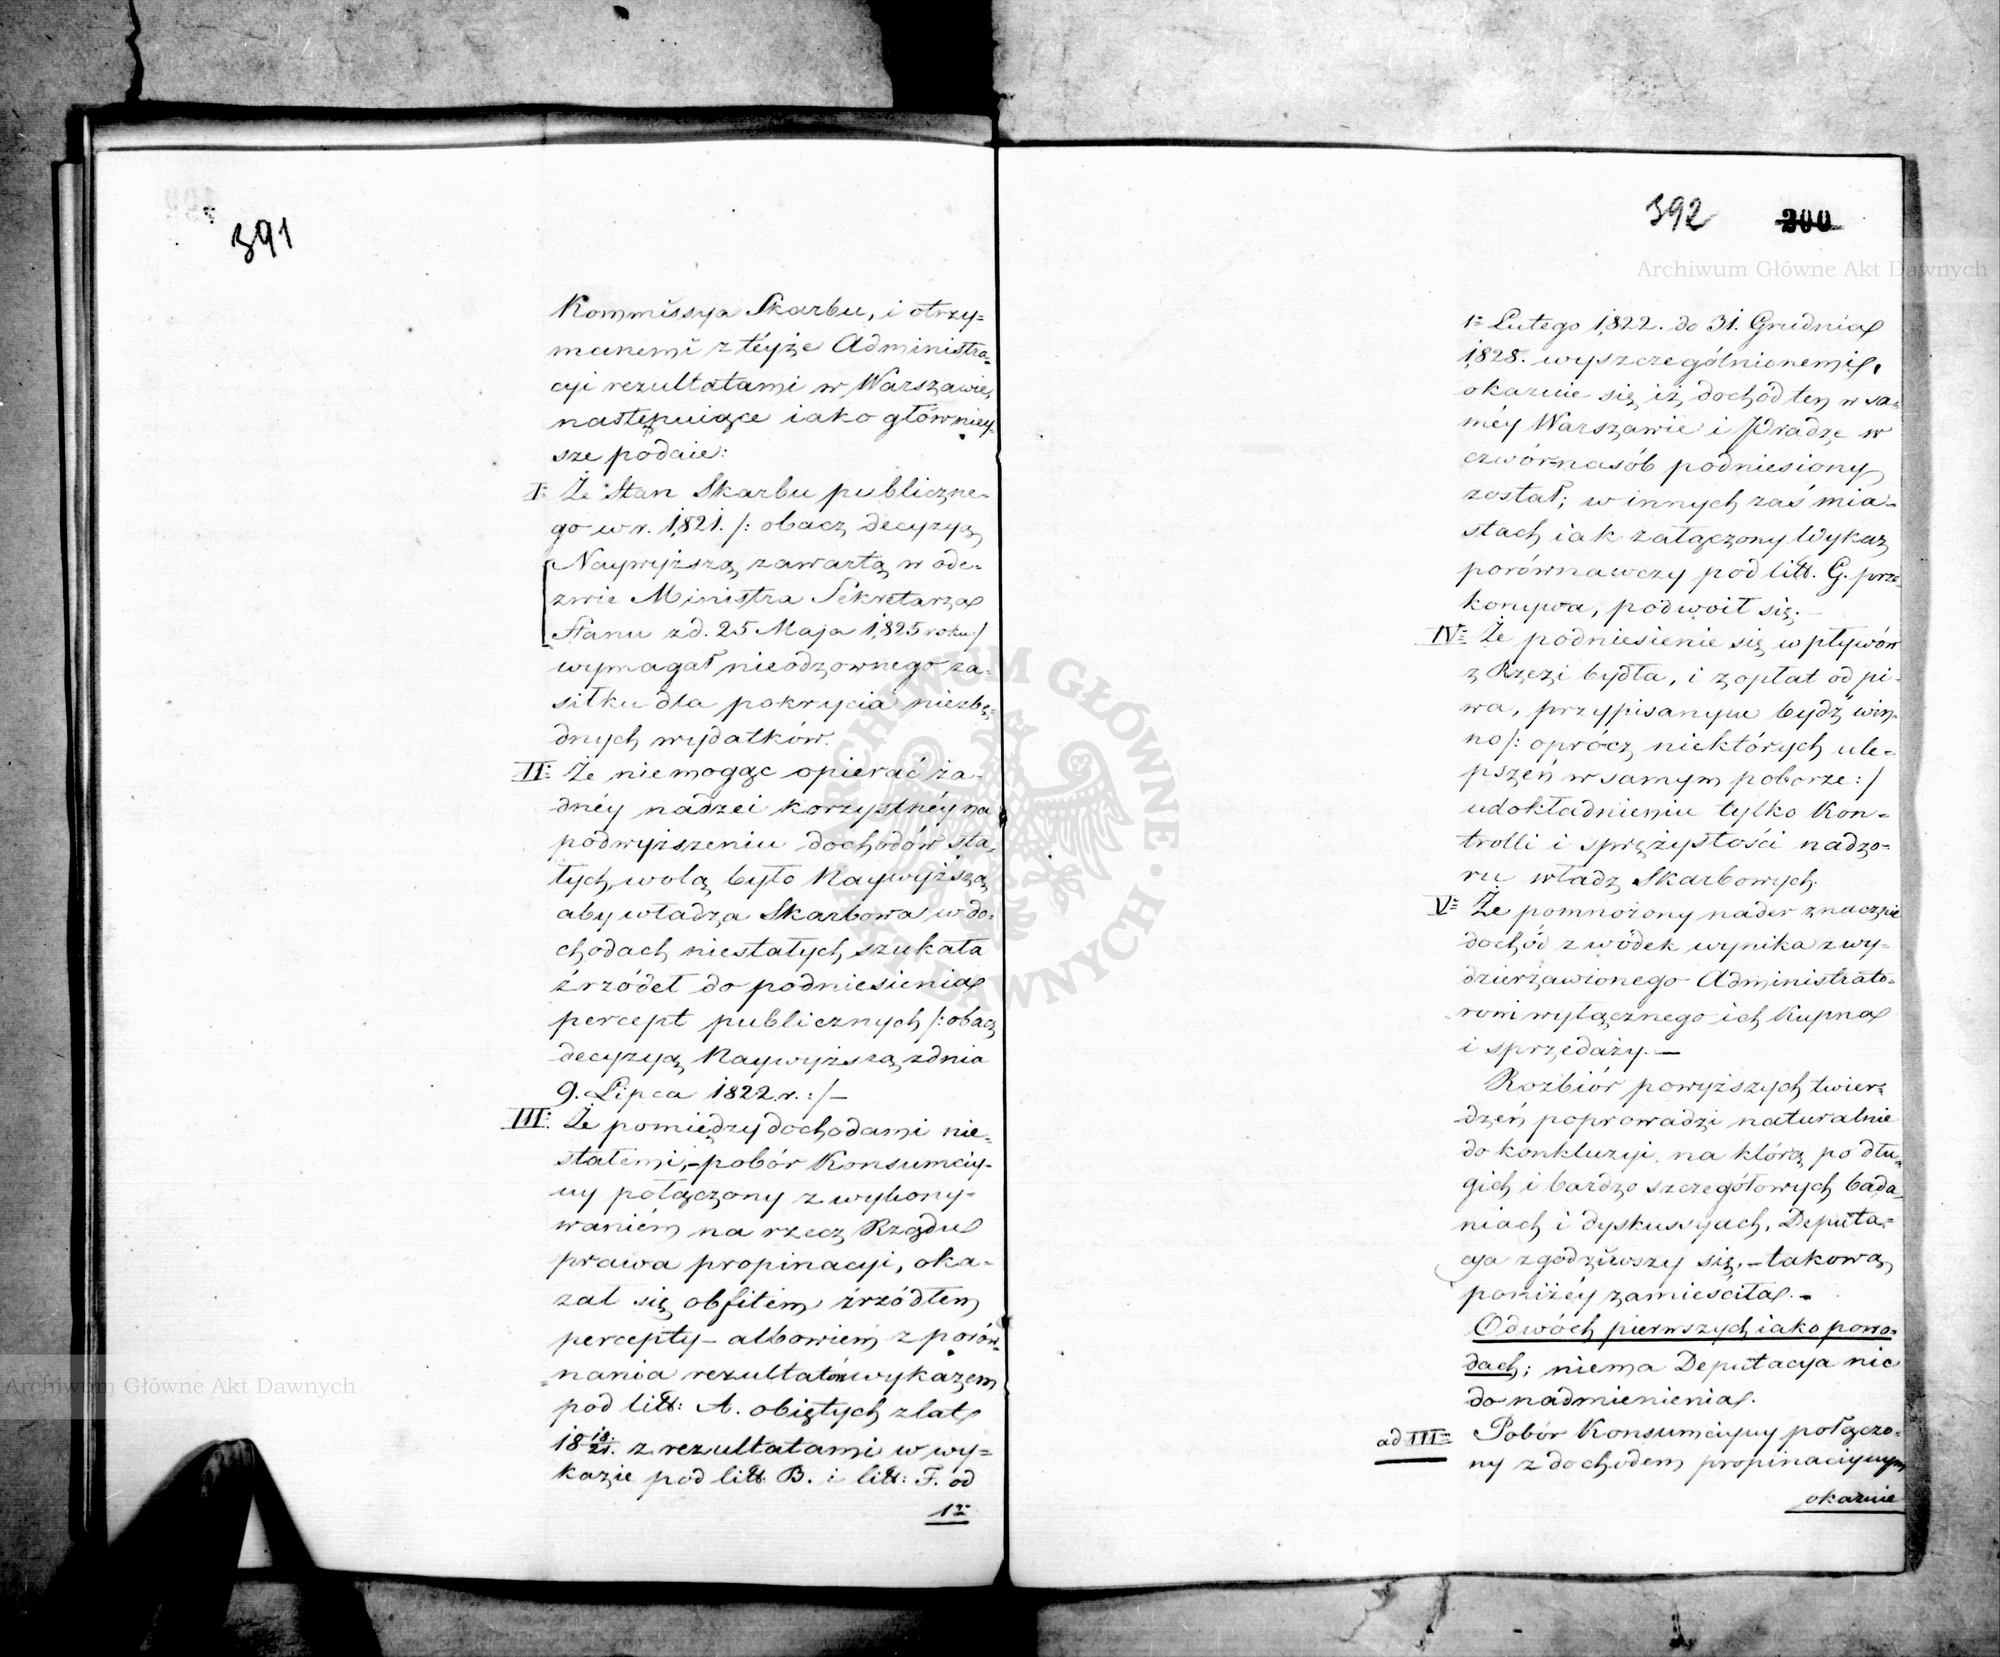 391
Kommissya Skarbu, i otrzy=
manemi z téyże Administra=
cyi rezultatami w Warszawie,
następuiące iako główniey=
sze podaie:
I: Że Stan Skarbu publiczne=
go w r. 1821. /: obacz decyzyą
Naywyższą zawartą w ode=
zwie Ministra Sekretarza
Stanu z d. 25 Maja 1825 roku :/
wymagał nieodzownego za=
siłku dla pokrycia niezbę=
dnych wydatków.
II: Że niemogąc opierać ża=
dnéy nadziei korzystnéy na
podwyższeniu dochodów sta=
łych, wolą było Naywyższą
aby władza Skarbowa w do=
chodach niestałych szukała
źrzódeł do podniesienia
percept publicznych /: obacz
decyzyą Naywyższą z dnia
9. Lipca 1822. r. :/ —
III: Że pomiędzy dochodami nie=
stałemi, – pobór Konsumcyy=
ny połączony z wykony=
waniem na rzecz Rządu
prawa propinacyi, oka=
zał się obfitém źrzódłem
percepty – albowiem z porów=
=nania rezultatów wykazem
pod litt: A. obiętych z lat
18 18./21. z rezultatami w wy=
kazie pod litt B. i litt: F. od
1=
392 200
1= Lutego 1822. do 31. Grudnia
1828. wyszczególnionemi,
okazuie się iż dochód ten w sa=
méy Warszawie i Pradze w
czwórnasób podniesiony
został; w innych zaś mia=
stach iak załączony Wykaz
porównawczy pod litt. G. prze=
konywa, podwoił się. —
IV= Że podniesienie się wpływów
z Rzezi bydła, i z opłat od pi=
wa, przypisanym bydź win=
no /: oprócz niektórych ule=
pszeń w samym poborze :/
udokładnieniu tylko Kon=
trolli i sprężystości nadzo=
ru władz Skarbowych.
V= Że pomnożony nader znacznie
dochód z wódek wynika z wy=
dzierżawionego Administrato=
rom wyłącznego ich Kupna
i sprzedaży. —
Rozbiór powyższych twier=
dzeń poprowadzi naturalnie
do konkluzyi, na którą po dłu=
gich i bardzo szczegółowych bada=
niach i dyskussyach, Deputa=
cya zgodziwszy się, – takową
poniżéy zamieściła. –
O dwóch pierwszych iako powo=
dach; niema Deputacya nic
do nadmienienia.
ad III= Pobór Konsumcyyny połączo=
ny z dochodem propinacyynym
okazuie
Archiwum Główne Akt Dawnych
Archiwum Główne Akt Dawnych
ARCHIWUM GŁÓWNE AKT DAWNYCH